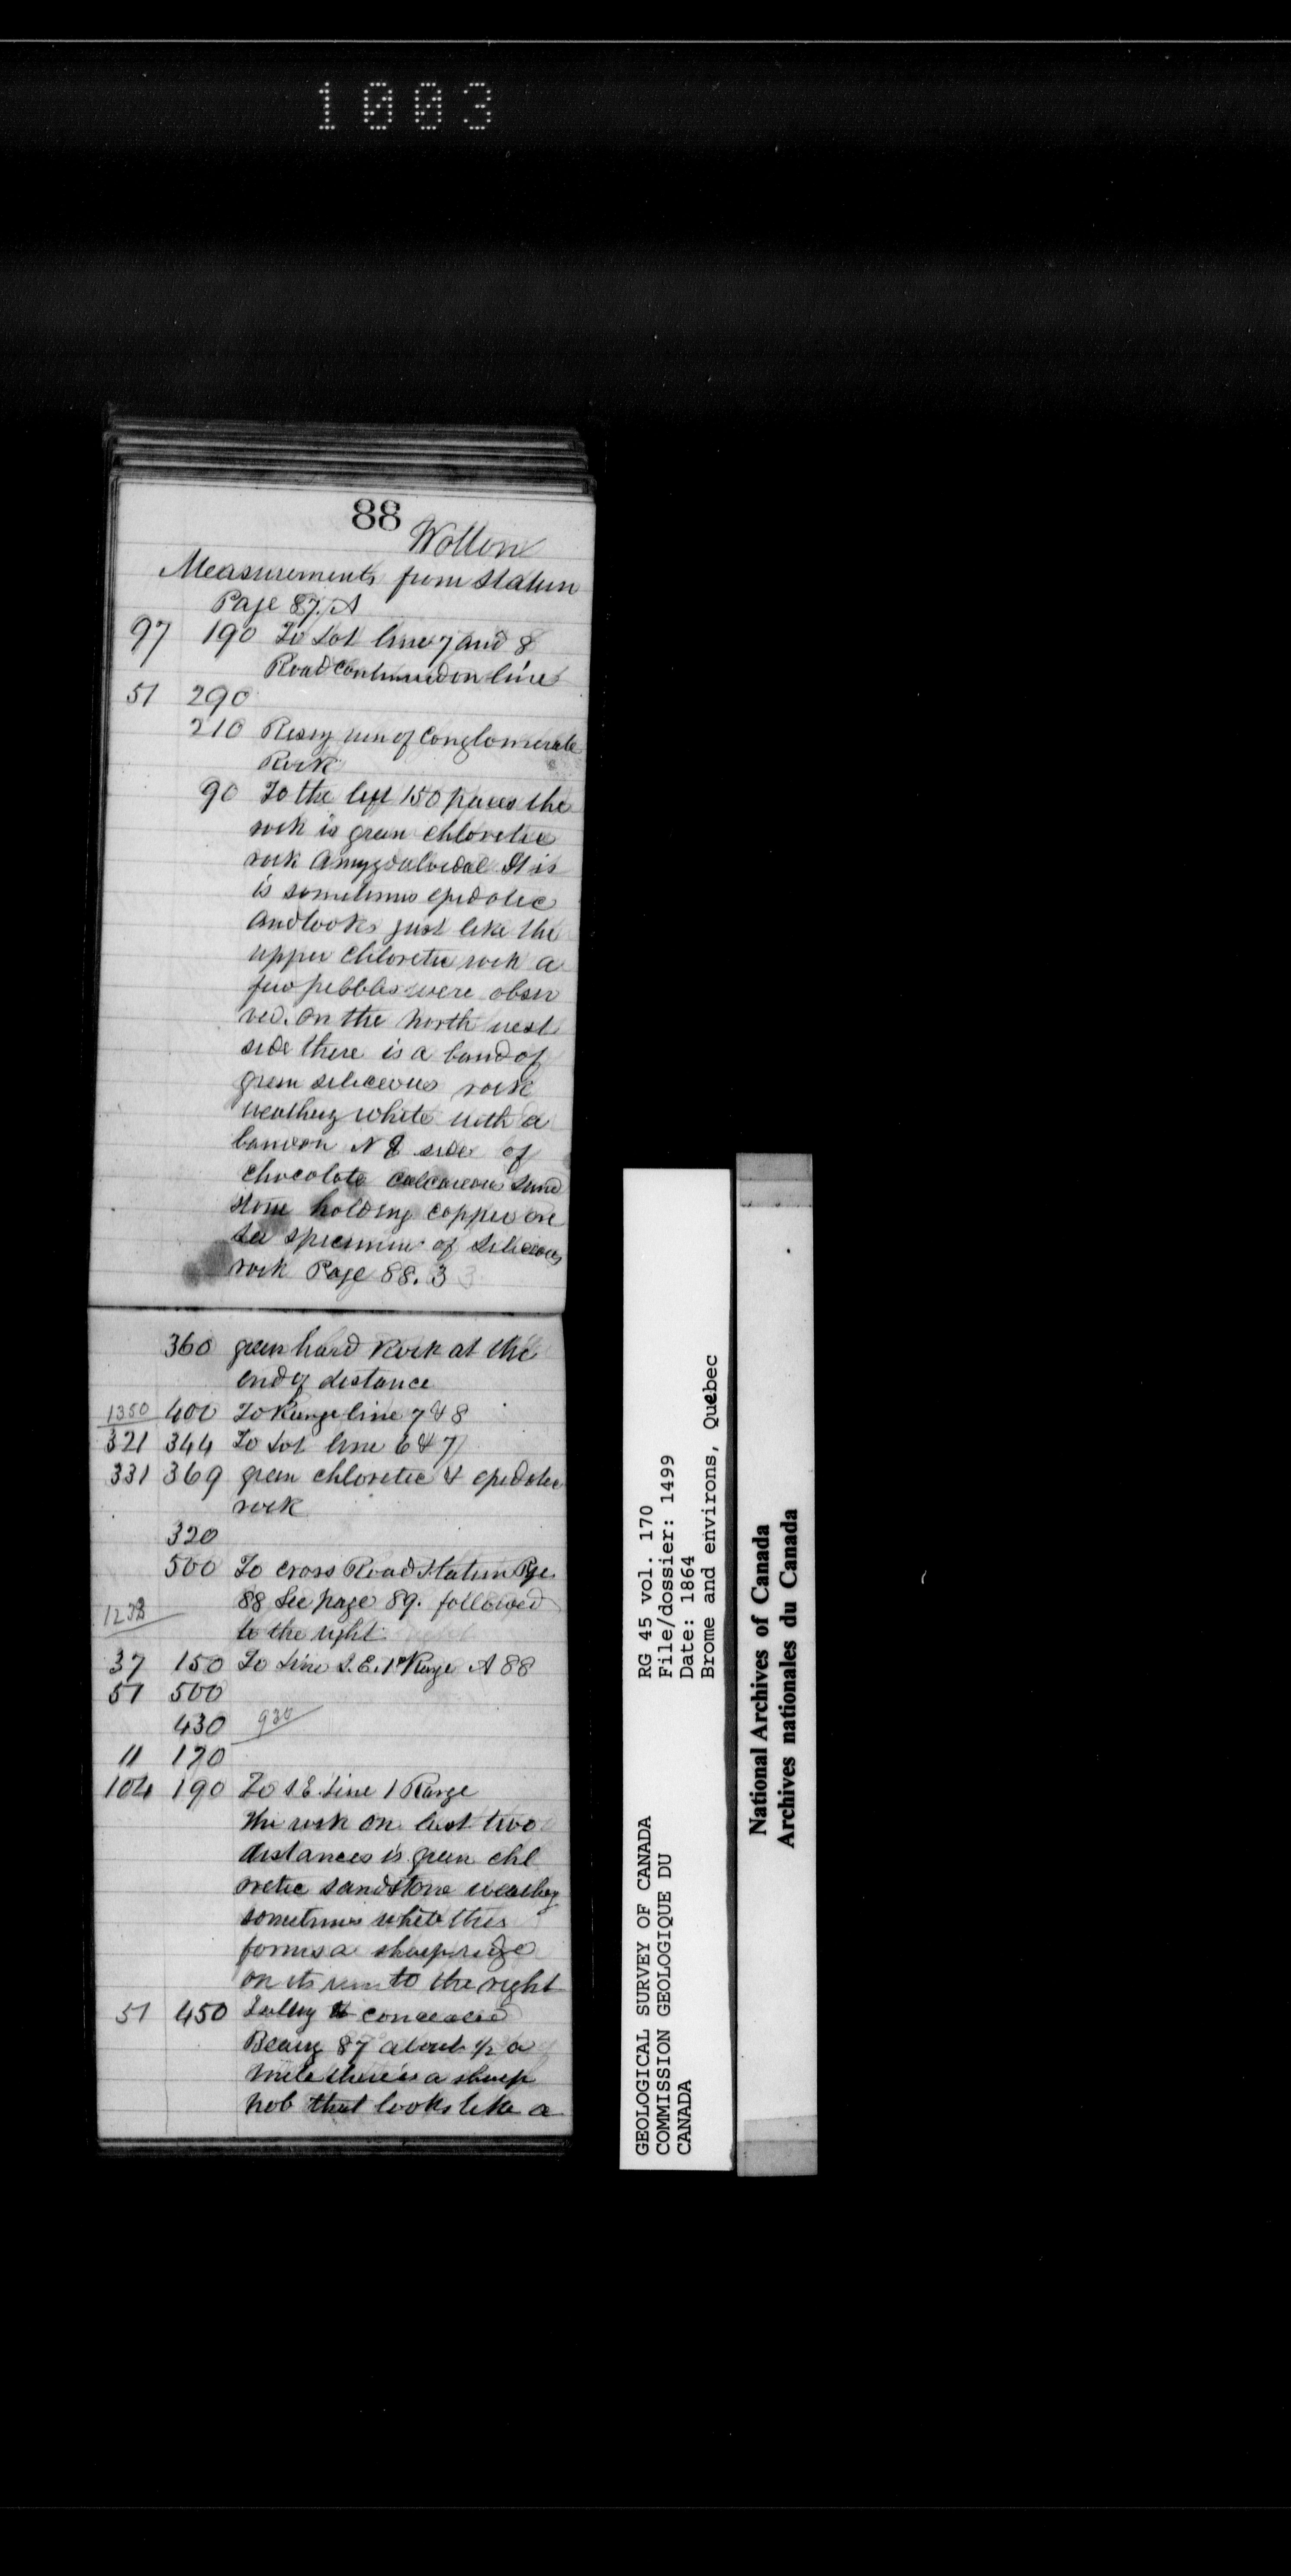 1003
88
Wotton
Measurements from Station
Page 87. A
97 190 To Lot line 7 and 8
Road continued on line
51 290
210 Rising run of Conglomerate
Rock
90 To the left 150 paces the
rock is green chloretic
rock Amygdaloidal It is
is sometimes epidotic
and looks just like the
upper chloretic rock a
few pebbles were obser
ved. on the north west
side there is a band of
green siliceous rock
weathering white with a
band on N E side of
chocolate calcareous sand
stone holding copper ore
See specimen of siliceous
rock Page 88. 3
360 green hard rock at the
end of distance
1350 400 To Range line 7 & 8
321 344 To Lot line 6 & 7
331 369 green chloretic & epidotic
rock
320
500 To cross Road Station Pge
88 See page 89. followed
to the right
37 150 To Line S.E. 1st Range A 88
51 500
430 930
11 170
104 190 To S E Line 1 Range
The rock on last two
distances is green chl
oretic sandstone weathg
sometimes white this
forms a sharp ridge
on its run to the right
51 450 concealed
Bearing 87 about 1/2 a
mile there is a sharp
nob that looks like a
GEOLOGICAL SURVEY OF CANADA
COMMISSION GEOLOGIQUE DU
CANADA
RG 45 vol. 170
File/dossier: 1499
Date: 1864
Brome and environs, Québec
National Archives of Canada
Archives nationales du Canada